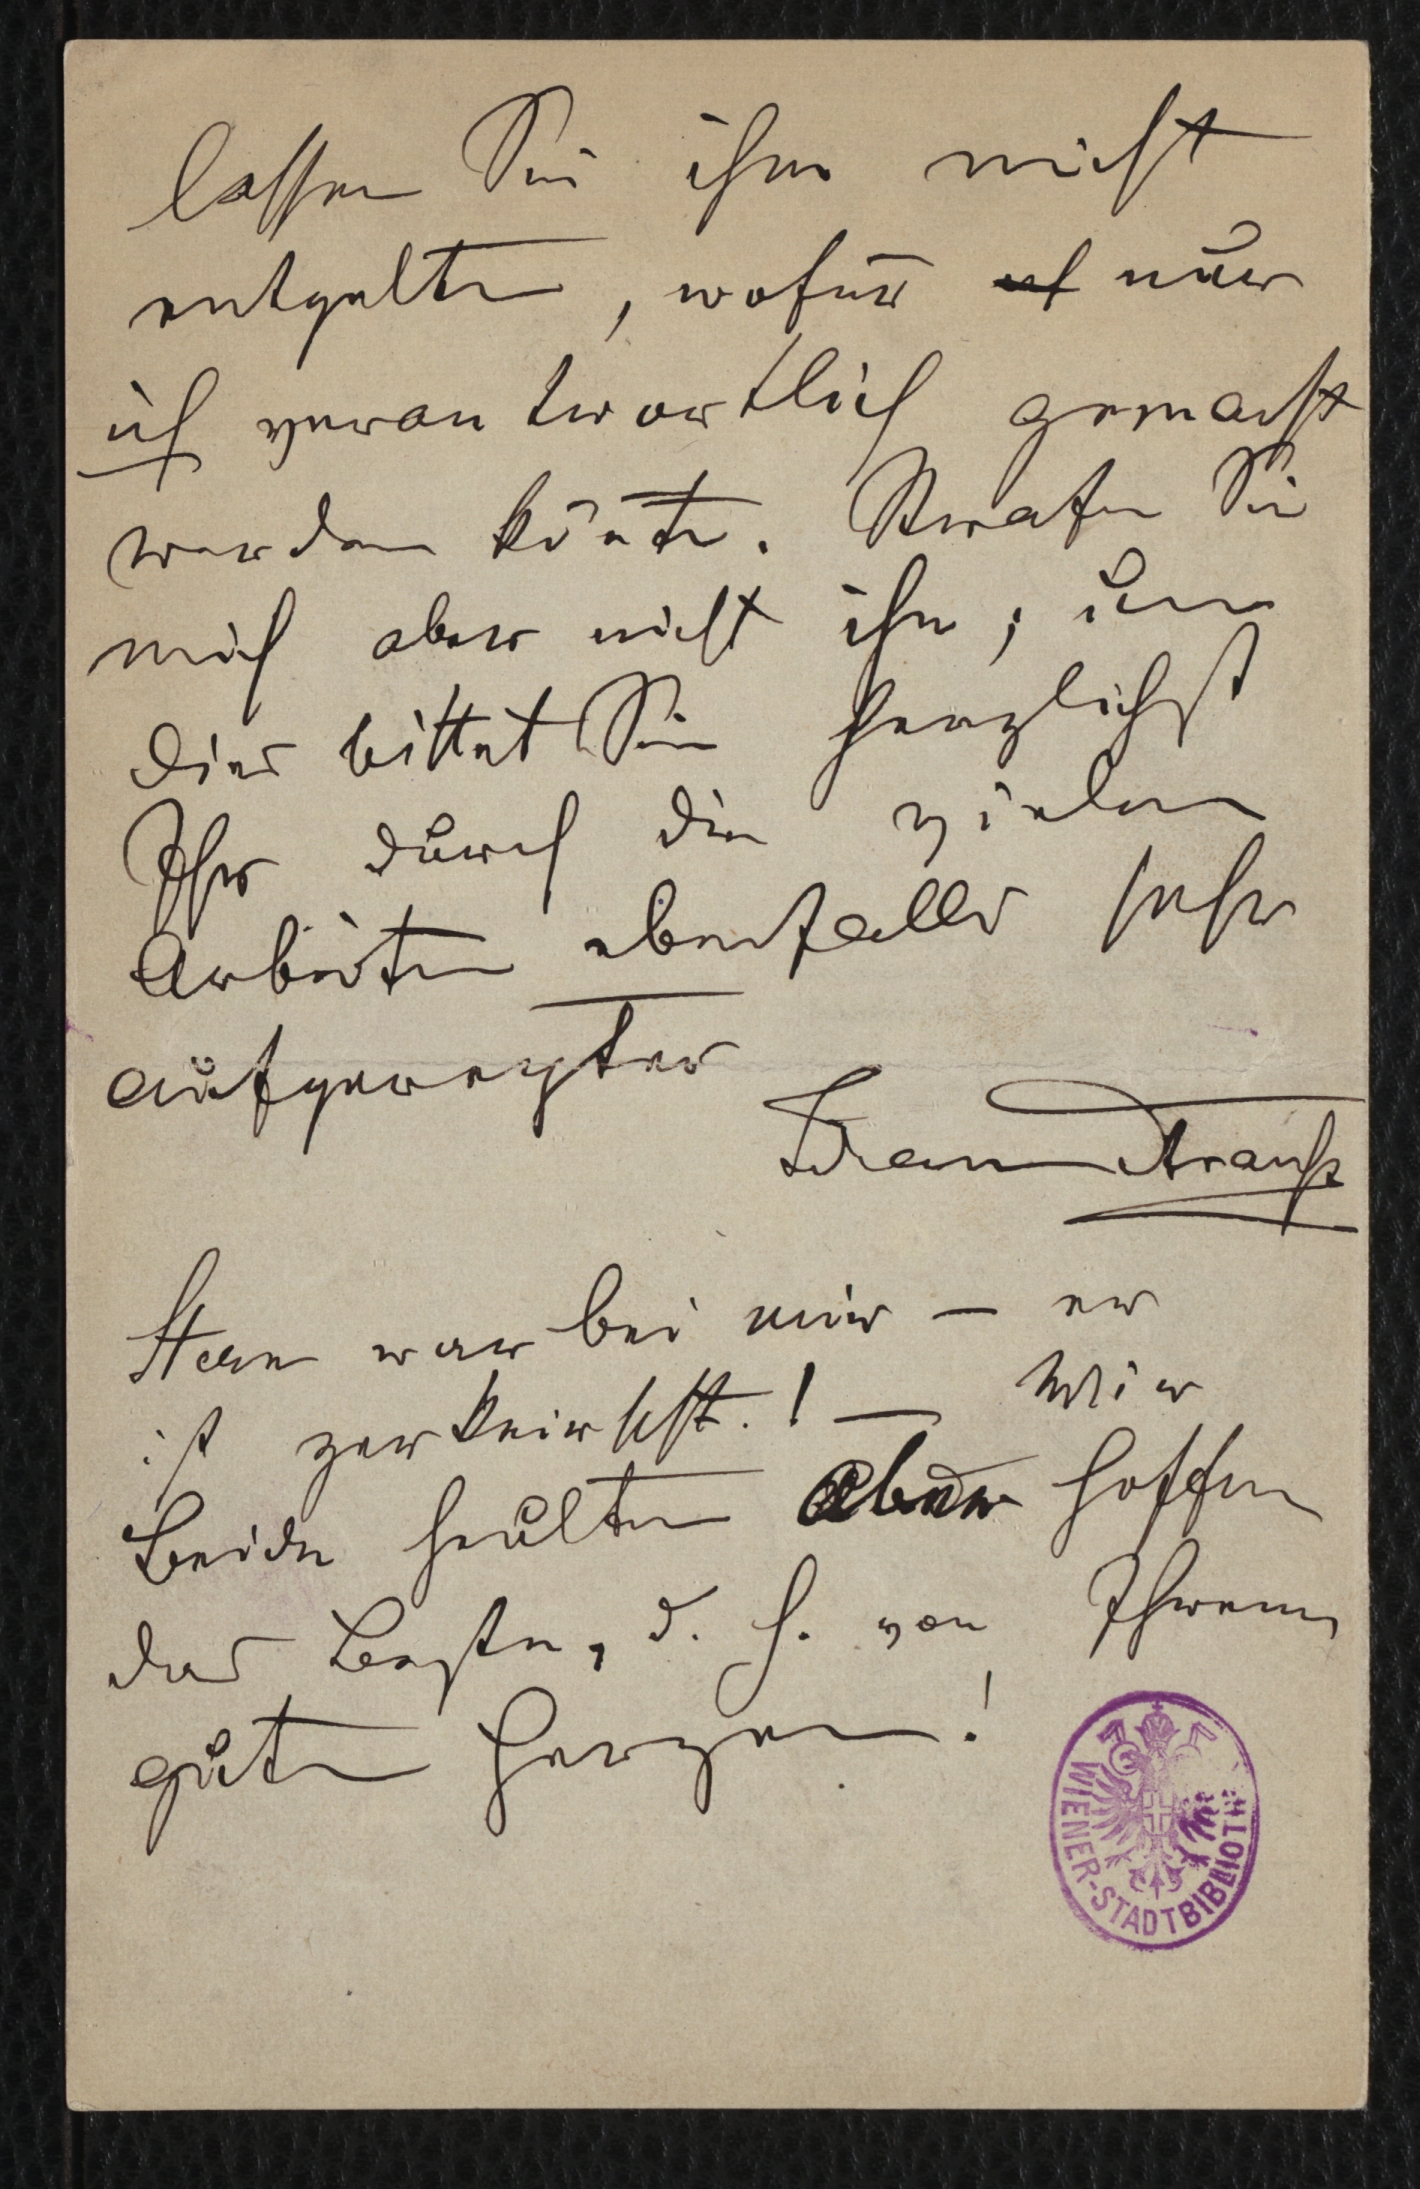 lassen Sie ihn nicht
entgelten, wofür nur
ich verantwortlich gemacht
werden könte. Strafen Sie
mich aber nicht ihn; um
dies bittet Sie herzlichst
Ihr durch die vielen
Arbeiten ebenfalls sehr
aufgeregter
Strauss
Stern war bei mir – er
ist zerknirscht.! – Wir
Beide heulten aber hoffen
das Beste, d. h. von Ihrem
guten Herzen!
WIENER-STADTBIBLIOTH